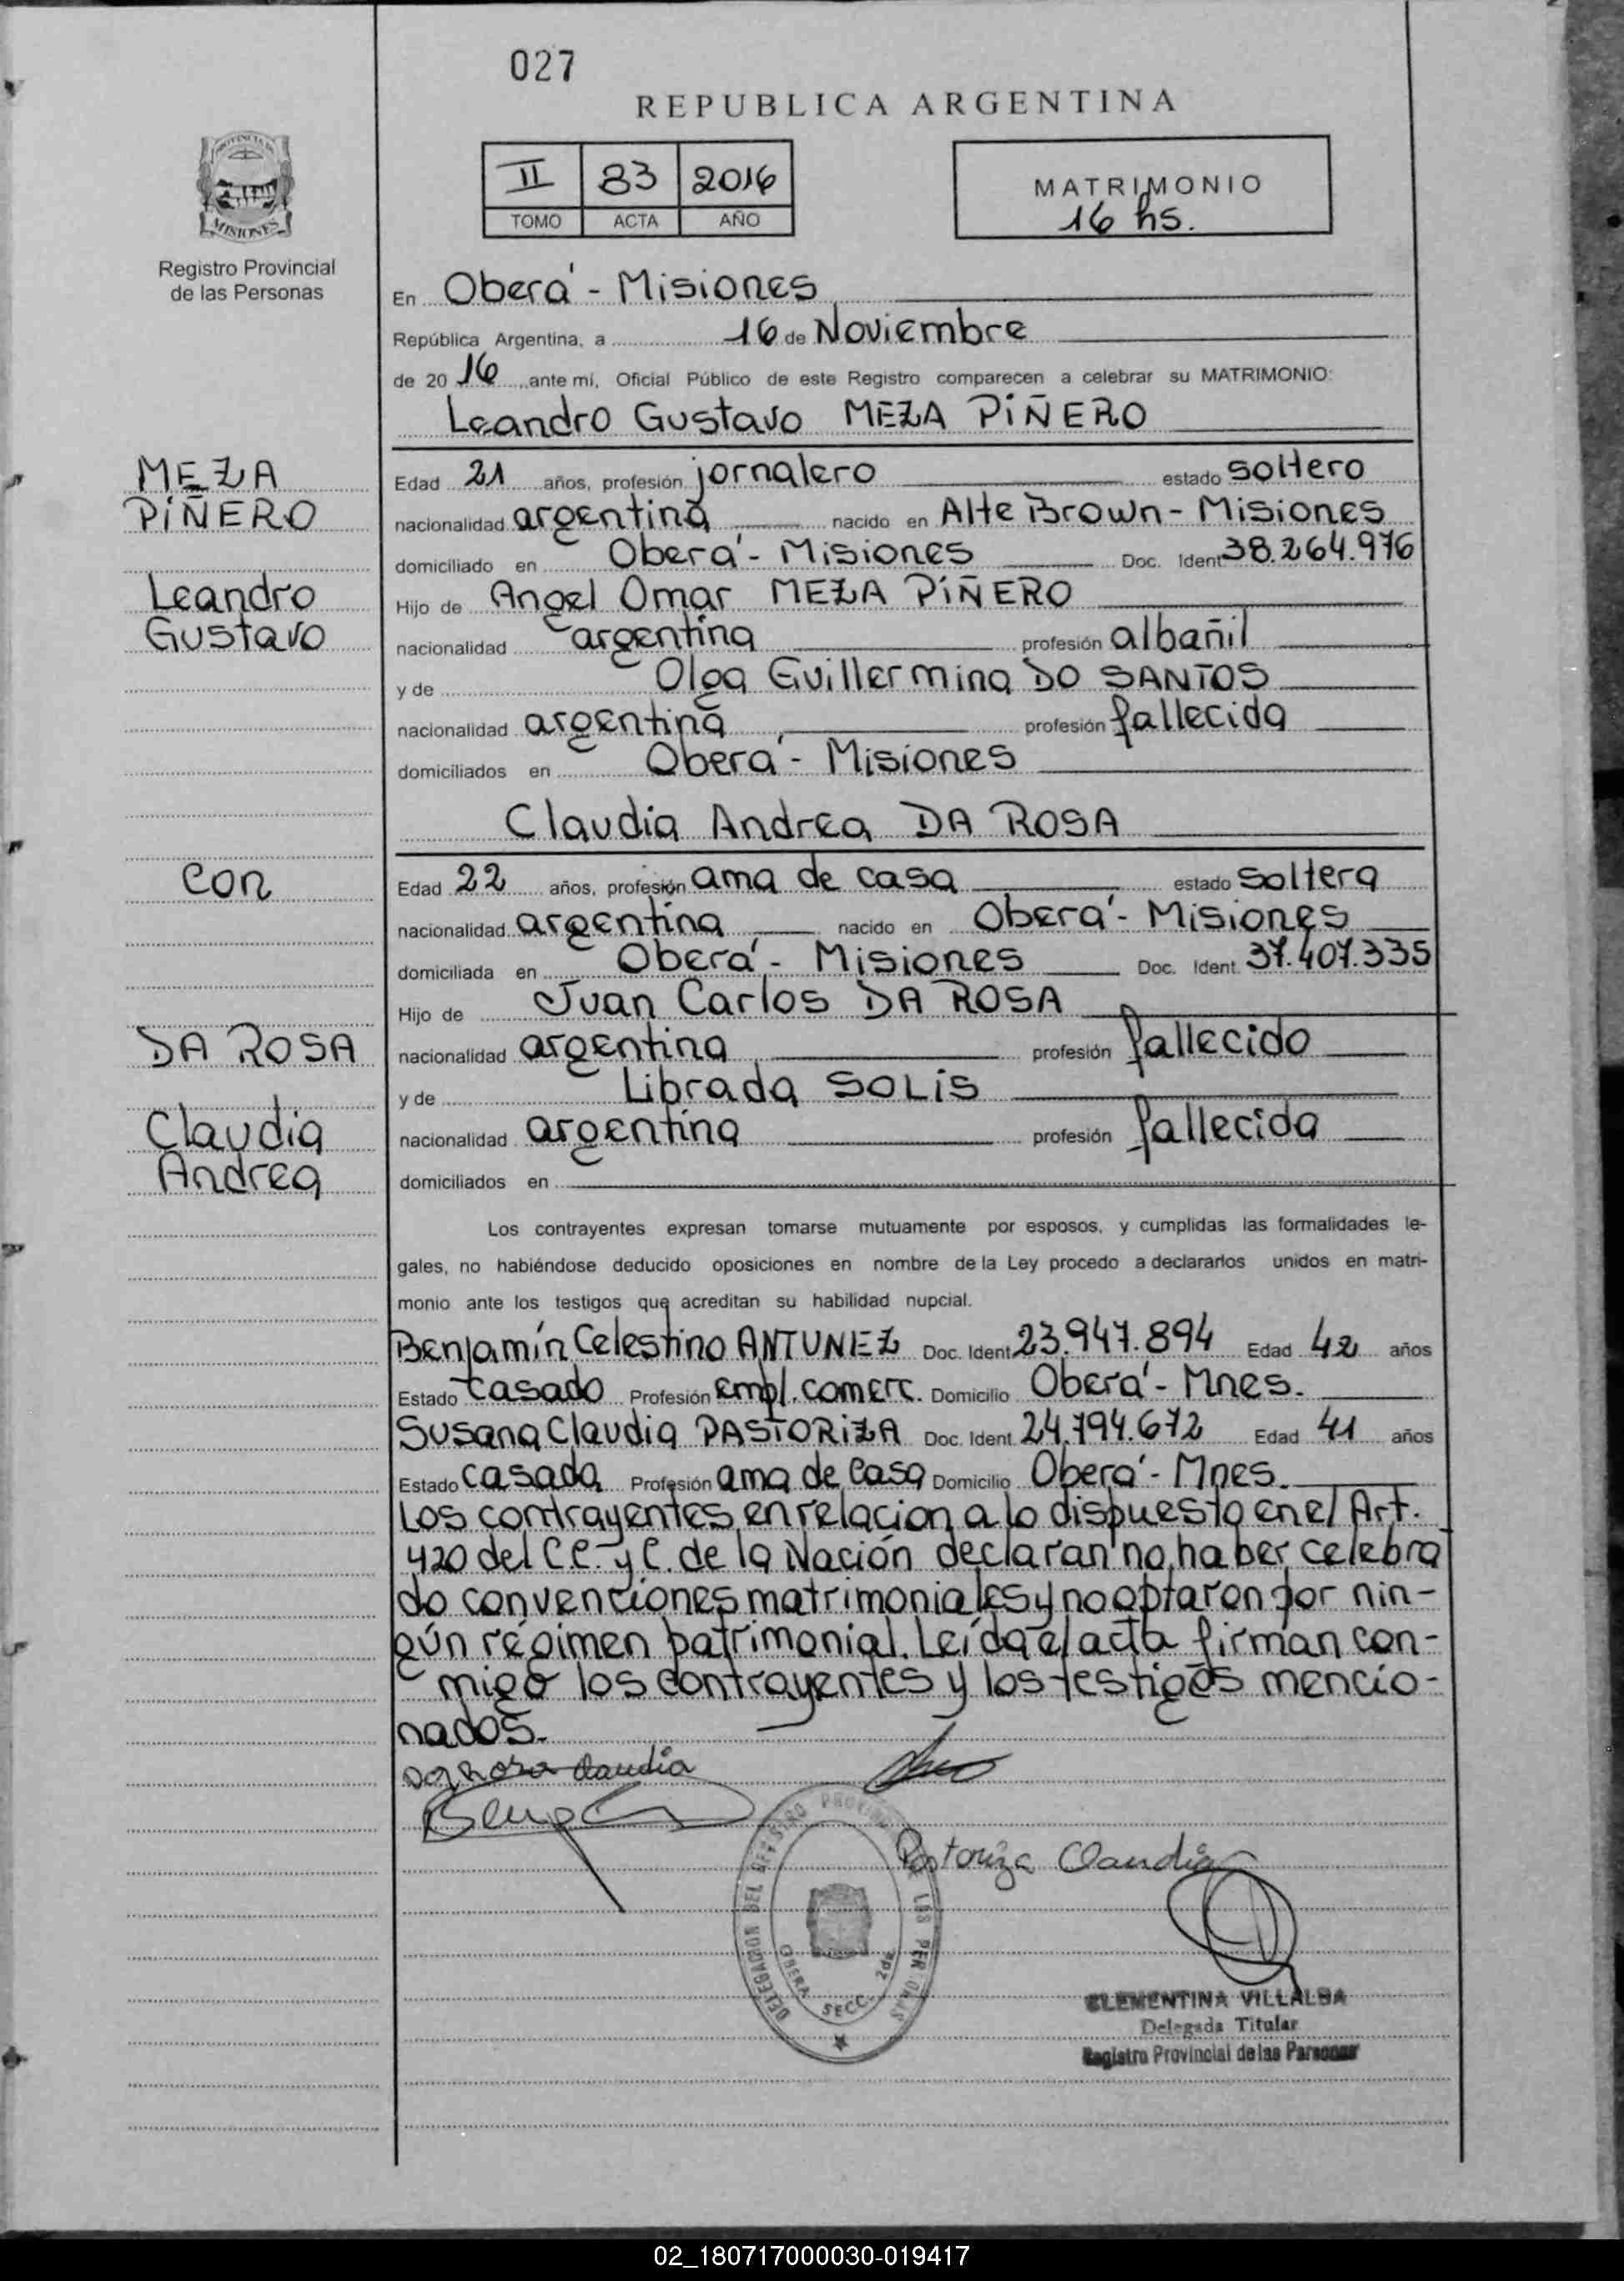 027
REPUBLICA ARGENTINA
II 83 2016
TOMO ACTA AÑO
MATRIMONIO
16 hs.
PROVINCIA DE
MISIONES
Registro Provincial
de las Personas
En Oberá - Misiones
República Argentina, a 16 de Noviembre
de 2016 ante mi, Oficial Público de este Registro comparecen a celebrar su MATRIMONIO:
Leandro Gustavo MEZA PIÑERO
MEZA
PIÑERO
Leandro
Gustavo
Edad 21 años, profesión jornalero estado soltero
nacionalidad argentina nacido en Alte Brown - Misiones
domiciliado en Oberá - Misiones Doc. Ident 38.264.976
Hijo de Angel Omar MEZA PIÑERO
nacionalidad argentina profesión albañil
y de Olga Guillermina DO SANTOS
nacionalidad argentina profesión fallecida
domiciliados en Oberá - Misiones
Claudia Andrea DA ROSA
con
Edad 22 años, profesión ama de casa estado soltera
nacionalidad argentina nacido en Oberá - Misiones
domiciliada en Oberá - Misiones Doc. Ident. 37.407.335
Hijo de Juan Carlos DA ROSA
DA ROSA
Claudia
Andrea
nacionalidad argentina profesión fallecido
y de Librada SOLIS
nacionalidad argentina profesión fallecida
domiciliados en
Los contrayentes expresan tomarse mutuamente por esposos, y cumplidas las formalidades le-
gales, no habiéndose deducido oposiciones en nombre de la Ley procedo a declararlos unidos en matri-
monio ante los testigos que acreditan su habilidad nupcial.
Benjamín Celestino ANTUNEZ Doc. Ident 23.947.894 Edad 42 años
Estado casado Profesión Empl. comerc. Domicilio Oberá - Mnes.
Susana Claudia PASTORIZA Doc. Ident. 24.794.672 Edad 41 años
Estado casada Profesión ama de casa Domicilio Oberá - Mnes.
Los contrayentes en relacion a lo dispuesto en el Art.
420 del C.C. y C. de la Nación declaran no haber celebra
do convenciones matrimoniales y no optaron por nin-
gún régimen patrimonial. Leída el acta firman con-
migo los contrayentes y los testigos mencio-
nados.
Da Rosa Claudia
Pastoriza Claudia
DELEGACION DEL REGISTRO PROVINCIAL DE LAS PERSONAS
OBERA SECC. 2da
CLEMENTINA VILLALBA
Delegada Titular
Registro Provincial de las Personas
02_180717000030-019417